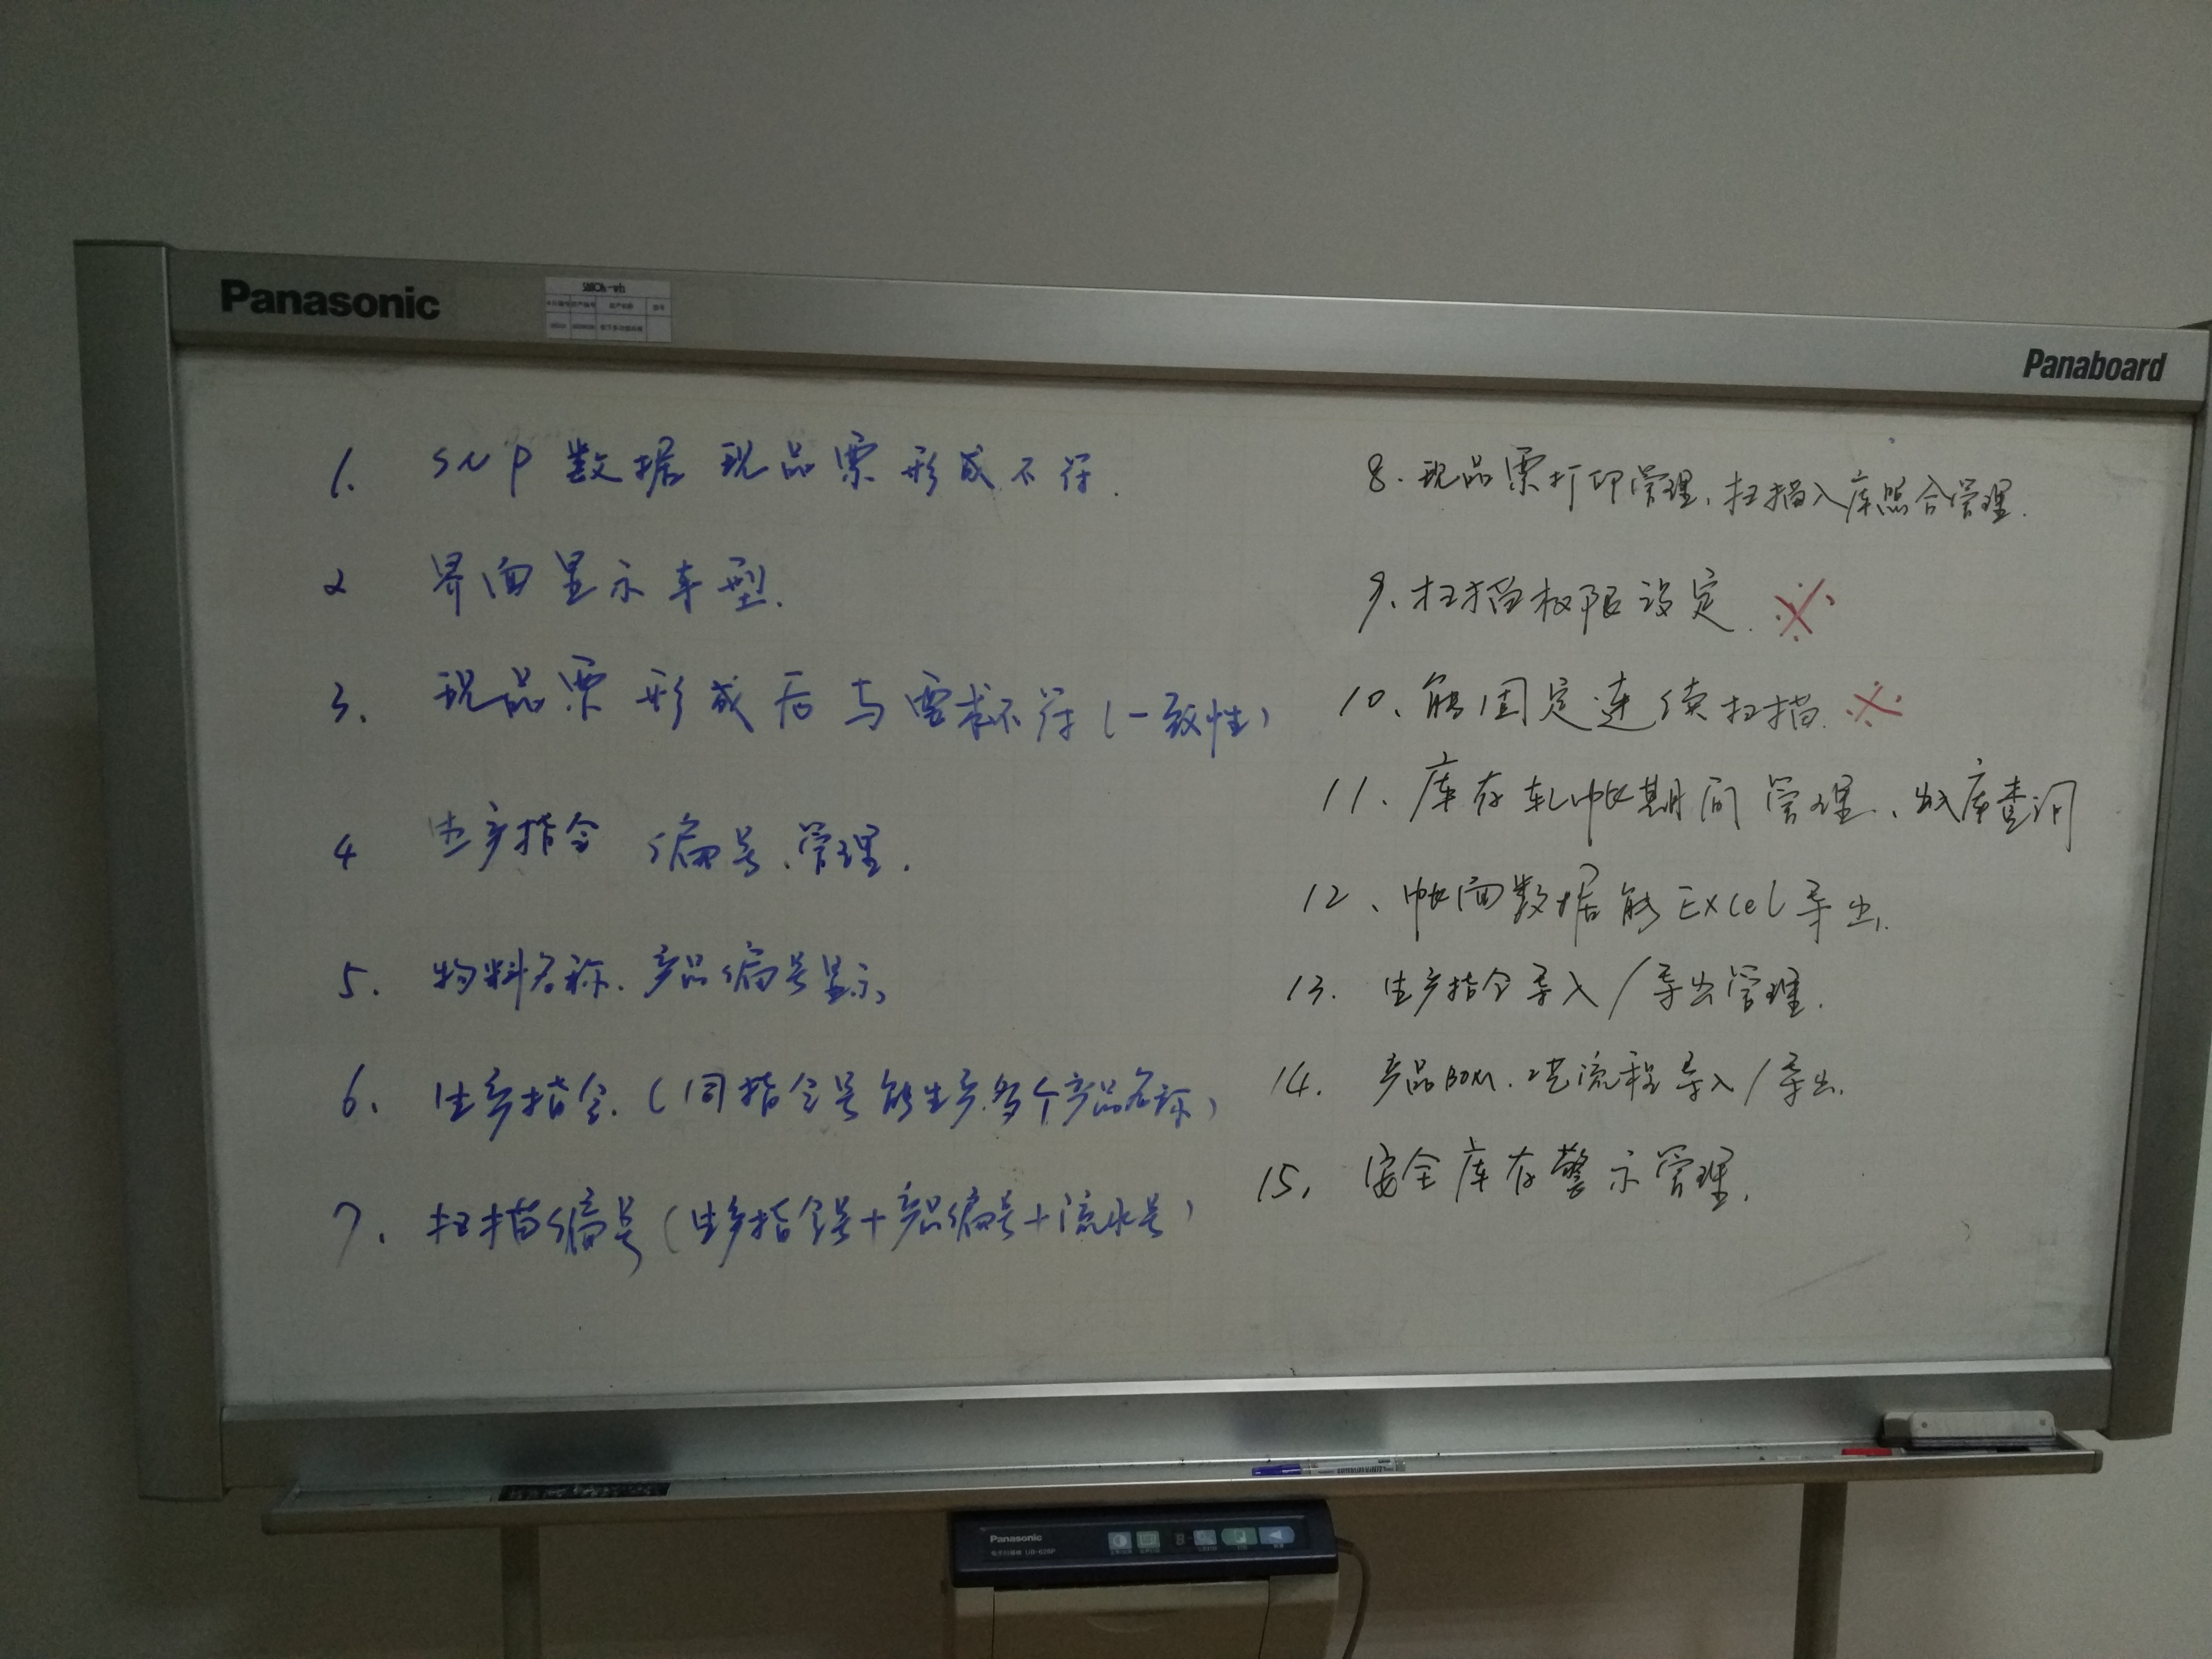 Panasonic
Panaboard
1. SNP 数据 现品票 形成 不符.
2 界面显示车型.
3. 现品票 形成后与需求不符(一致性)
4 生产指令 编号、管理.
5. 物料名称. 产品编号显示
6. 生产指令. (同指令号能生产多个产品名称)
7. 扫描编号(生产指令号+产品编号+流水号)
8. 现品票打印管理, 扫描入库照合管理.
9、扫描权限设定. ※
10、能固定连续扫描. ※
11、库存轧帐期间管理、出入库查询
12、帐面数据能Excel导出.
13. 生产指令导入/导出管理.
14. 产品BOM. 工艺流程导入/导出.
15. 安全库存警示管理.
Panasonic